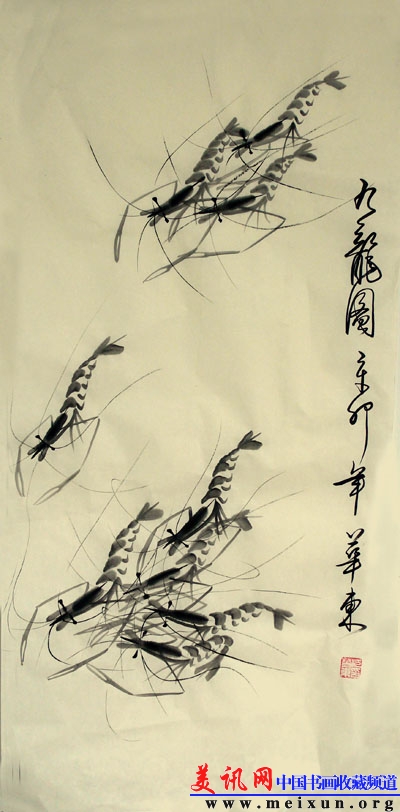 九龍圖 辛卯年華東
美讯网 中国书画收藏频道
www.meixun.org